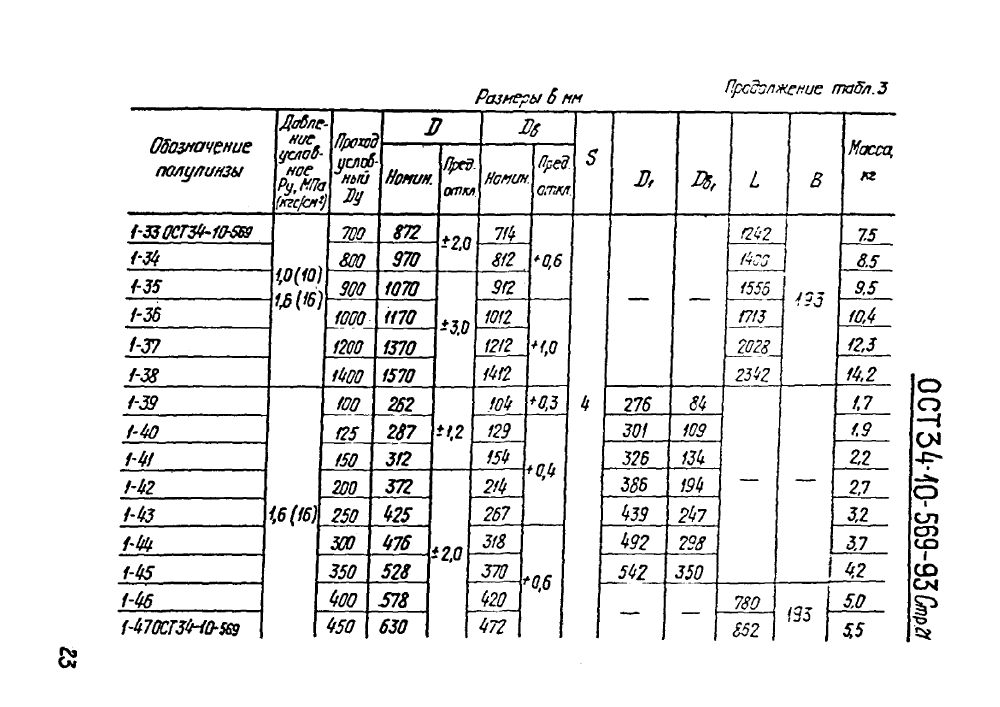 Продолжение табл. 3
Размеры в мм
Обозначение полулинзы | Давление условное Ру, МПа (кгс/см²) | Проход условный Ду | D Номин. | D Пред. откл. | Dв Номин. | Dв Пред. откл. | S | D₁ | Dв₁ | L | В | Масса, кг
1-33 ОСТ 34-10-569 | 1,0 (10) 1,6 (16) | 700 | 872 | ±2,0 | 714 | +0,6 | 4 | — | — | 1242 | 193 | 7.5
1-34 | 800 | 970 | 812 | 8.5
1-35 | 900 | 1070 | ±3,0 | 912 | 1556 | 9,5
1-36 | 1000 | 1170 | 1012 | +1,0 | 1713 | 10,4
1-37 | 1200 | 1370 | 1212 | 2028 | 12,3
1-38 | 1400 | 1570 | 1412 | 2342 | 14,2
1-39 | 1,6 (16) | 100 | 262 | ±1,2 | 104 | +0,3 | 276 | 84 | — | — | 1,7
1-40 | 125 | 287 | 129 | +0,4 | 301 | 109 | 1,9
1-41 | 150 | 312 | 154 | 326 | 134 | 2,2
1-42 | 200 | 372 | ±2,0 | 214 | 386 | 194 | 2,7
1-43 | 250 | 425 | 267 | 439 | 247 | 3,2
1-44 | 300 | 476 | 318 | +0,6 | 492 | 298 | 3,7
1-45 | 350 | 528 | 370 | 542 | 350 | 4,2
1-46 | 400 | 578 | 420 | — | — | 780 | 193 | 5,0
1-47 ОСТ 34-10-569 | 450 | 630 | 472 | 852 | 5,5
ОСТ 34-10-569-93 Стр. 21
23